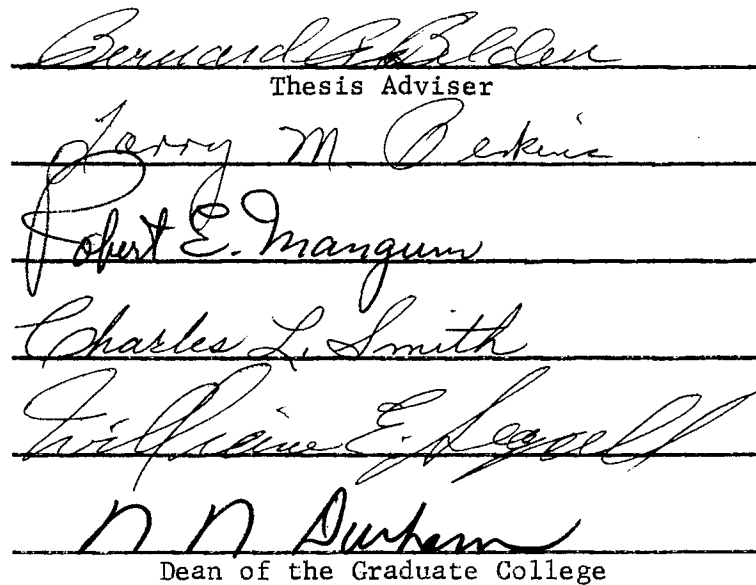 Bernard R. Belden
Thesis Adviser
Larry M. Perkins
Robert E. Mangum
Charles L. Smith
William E. Segall
N N Durham
Dean of the Graduate College